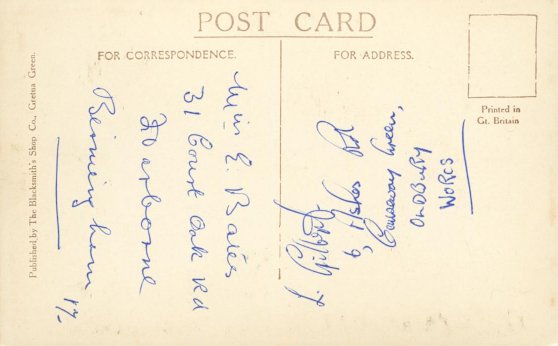 POST CARD
FOR CORRESPONDENCE.
FOR ADDRESS.
Printed in
Gt. Britain
Published by The Blacksmith's Shop Co., Gretna Green.
Miss E. Bates
31 Court Oak Rd
Harborne
Birmingham 17
L. Gilbert
6, Ashes Rd
Causeway Green,
OLDBURY
WORCS